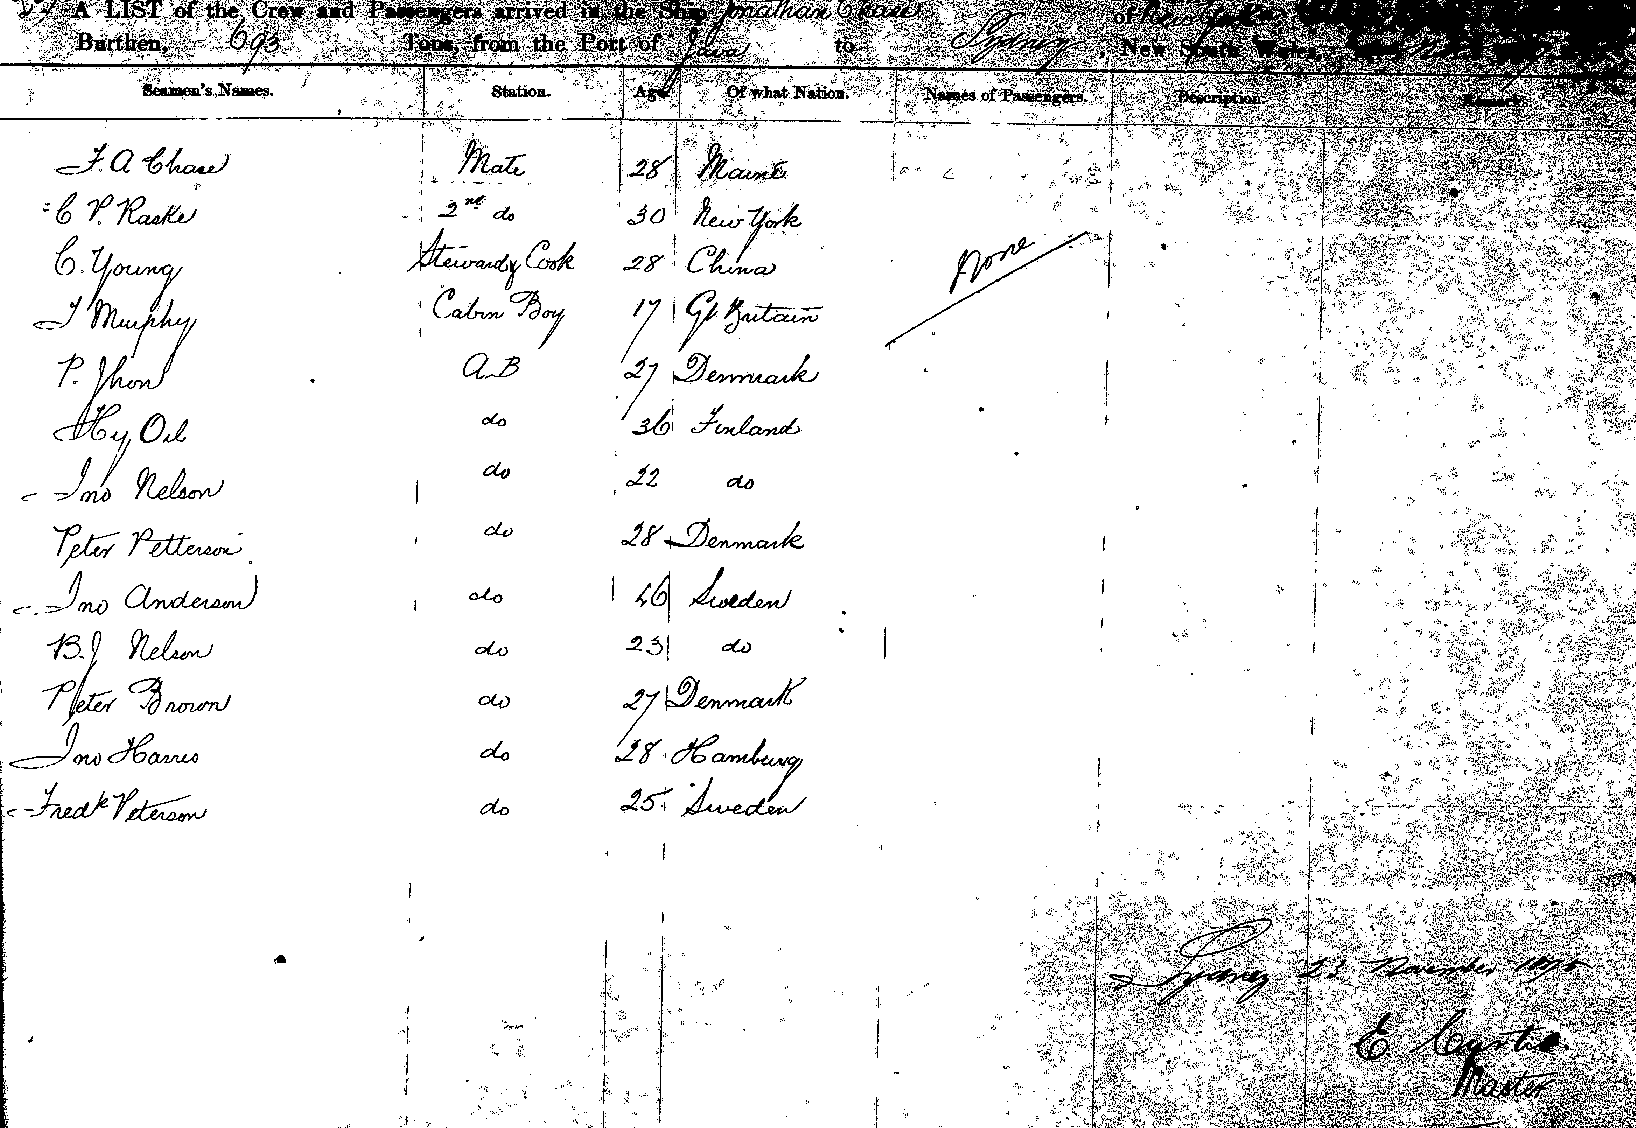 A LIST of the Crew and Passengers arrived in the Ship Jonathan Chase of New York
Burthen, 693 Tons, from the Port of Java to Sydney, New South Wales,
Seamen's Names. Station. Age Of what Nation. Names of Passengers. Description. Remark
F. A Chase Mate 28 Maine
C P. Raske 2nd do 30 New York
C. Young Steward & Cook 28 China None
J Murphy Cabin Boy 17 Gt Britain
P. Jhon A.B 27 Denmark
Hy Oil do 36 Finland
Jno Nelson do 22 do
Peter Petterson do 28 Denmark
Jno Anderson do 46 Sweden
B. J Nelson do 23 do
Peter Brown do 27 Denmark
Jno Harris do 28 Hamburg
Fredk Peterson do 25 Sweden
Sydney 23 November 1875
E Curtis
Master